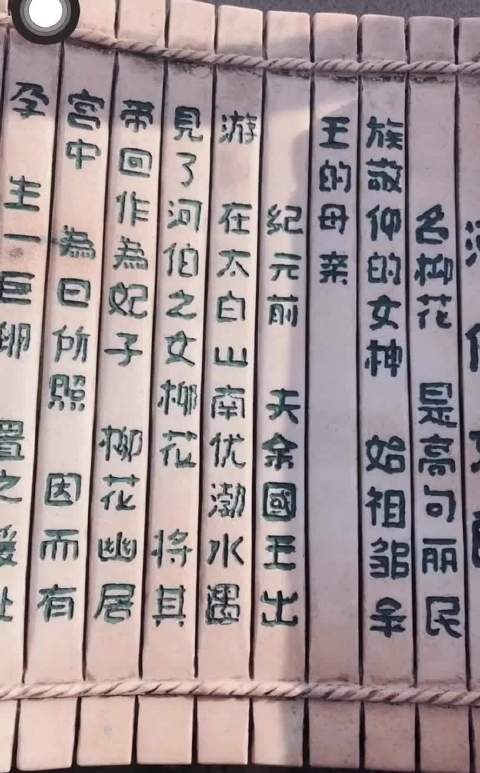 名柳花 是高句丽民
族敬仰的女神 始祖邹牟
王的母亲
紀元前 夫余國王出
游 在太白山南优渤水遇
見了河伯之女柳花 将其
带回作為妃子 柳花幽居
宫中 為日所照 因而有
孕 生一巨卵 置之暖